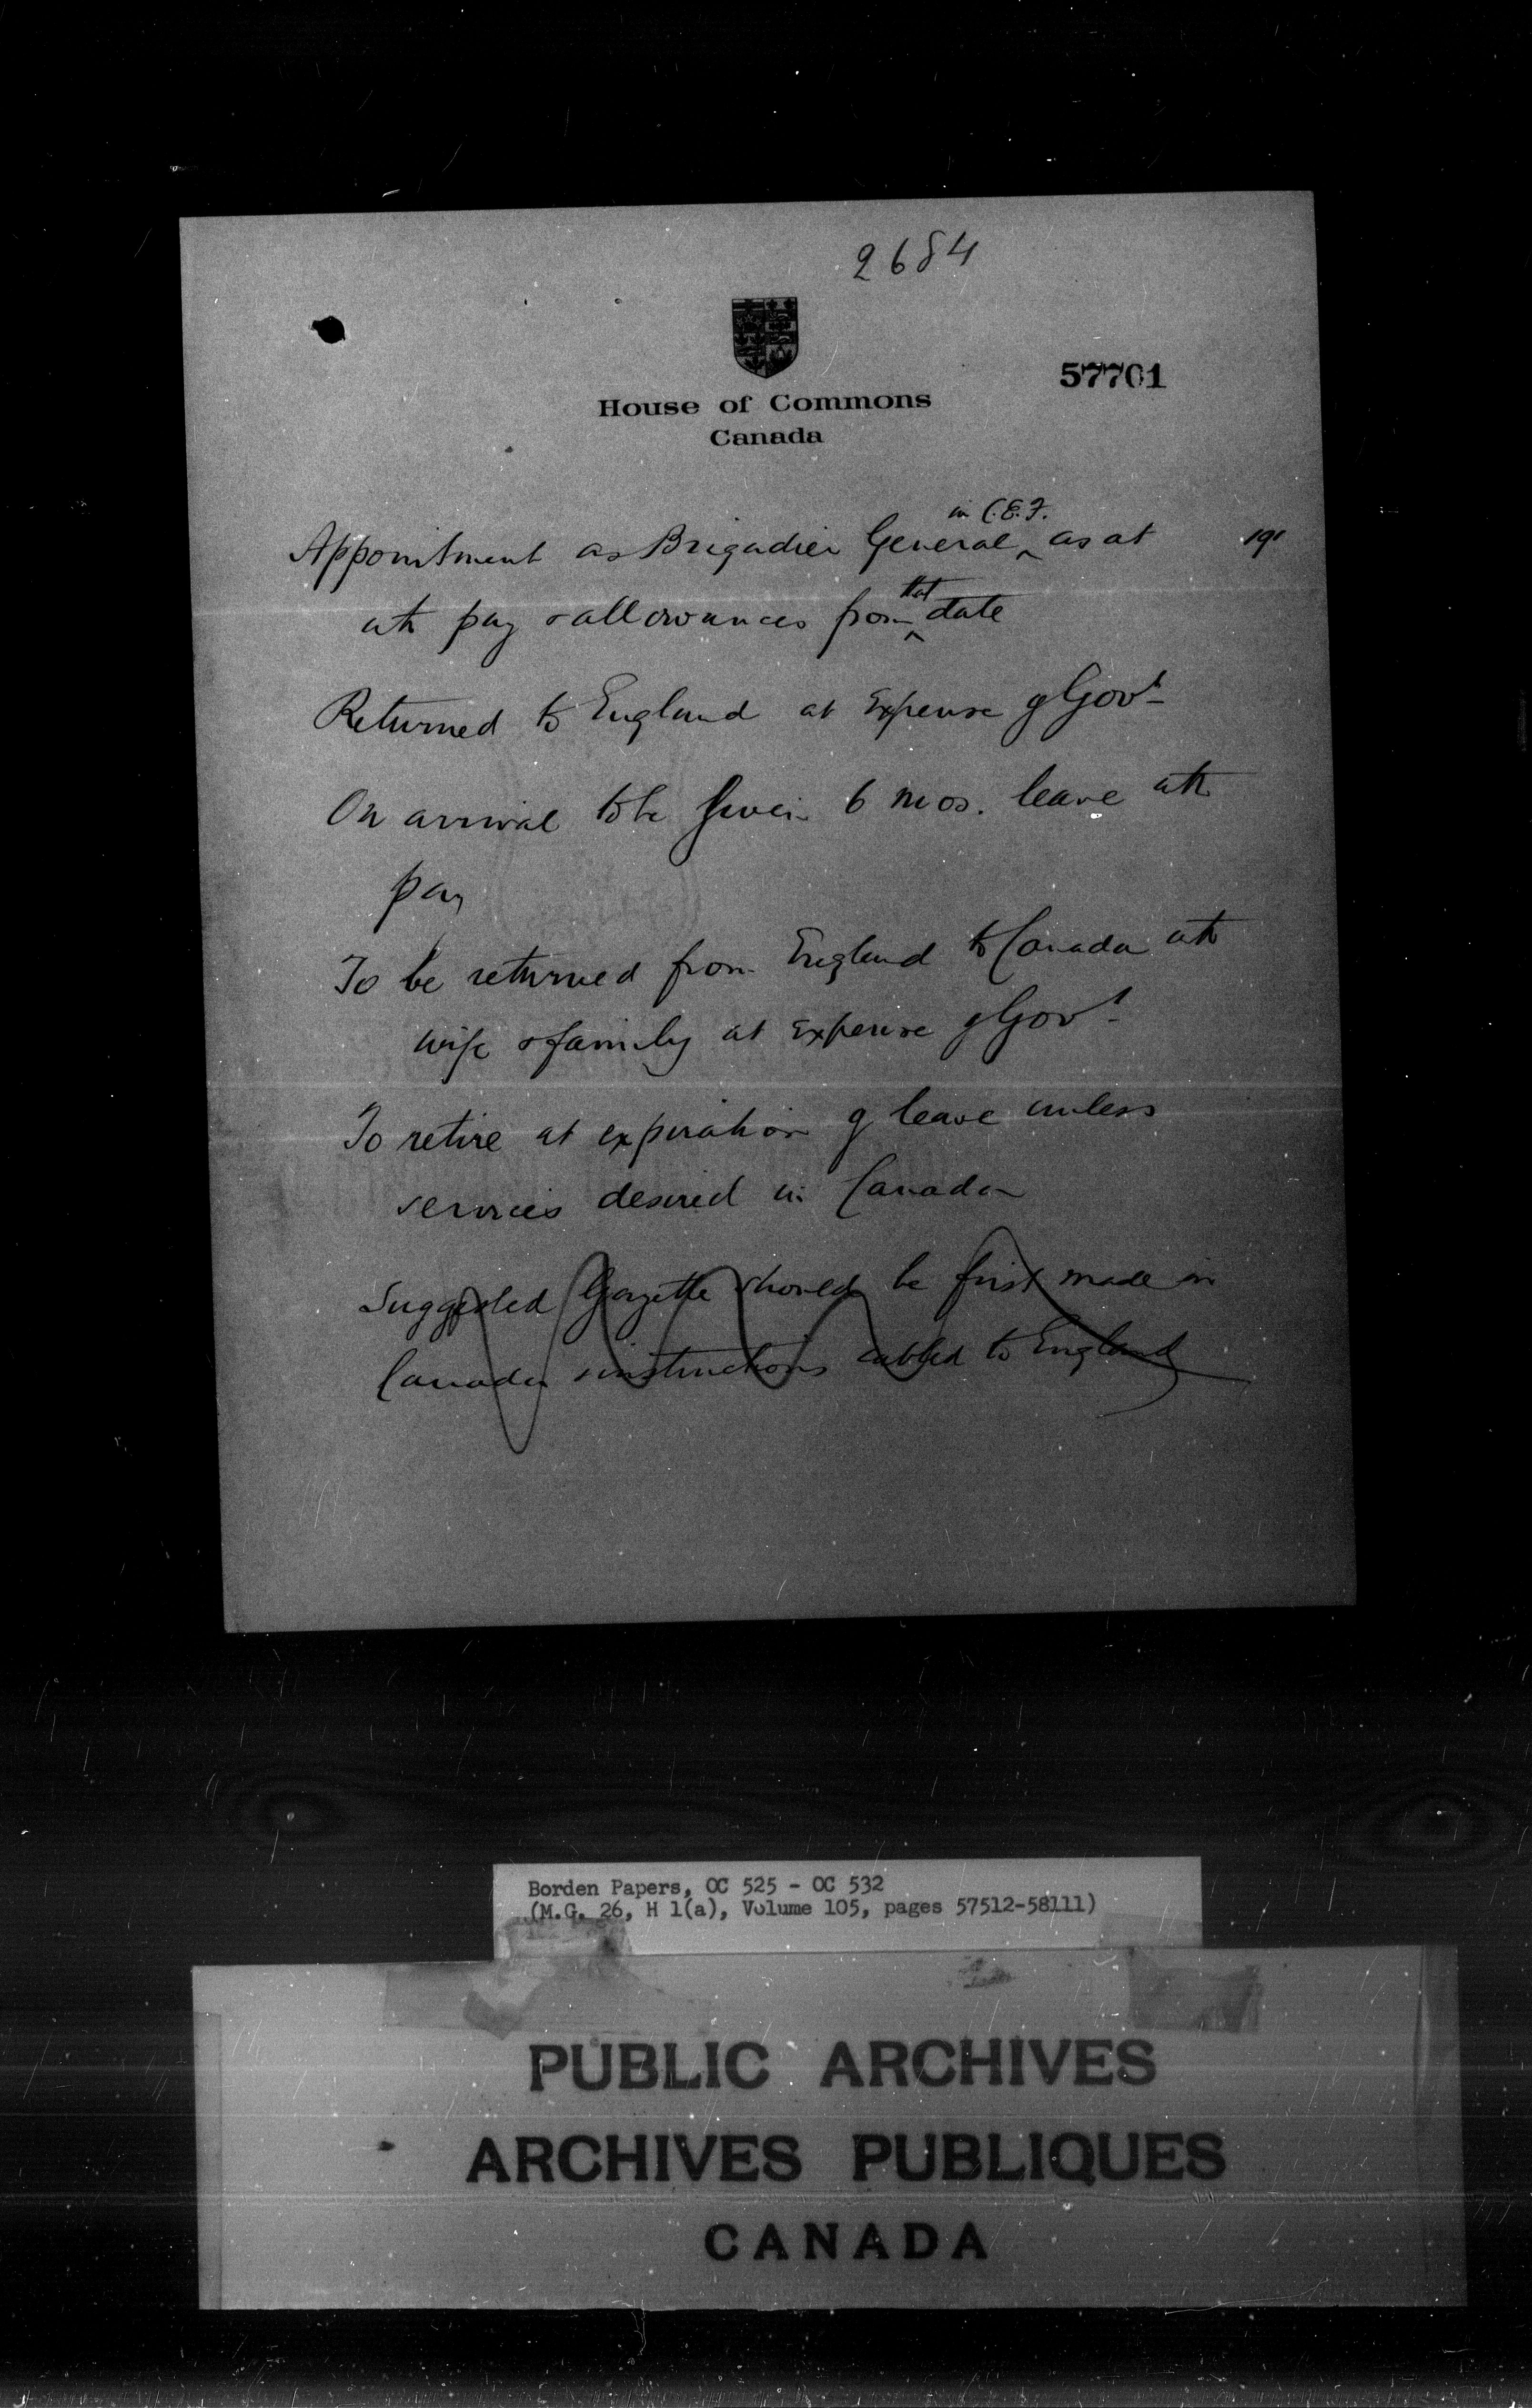 2684
57701
House of Commons
Canada
in C.E.F.
Appointment as Brigadier General ^ as at 191
that
with pay & allowances from ^ date
Returned to England at Expense of Govt
On arrival to be given 6 mos. leave with
pay
To be returned from England to Canada with
wife & family at expense of Govt.
To retire at expiration of leave unless
services desired in Canada
Suggested Gazette should be first made in
Canada & instructions cabled to England
Borden Papers, OC 525 - OC 532
(M.G. 26, H 1(a), Volume 105, pages 57512-58111)
PUBLIC ARCHIVES
ARCHIVES PUBLIQUES
CANADA